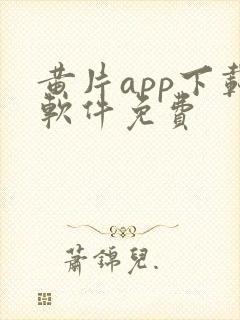 黄片app下載
軟件免費
蕭錦兒.